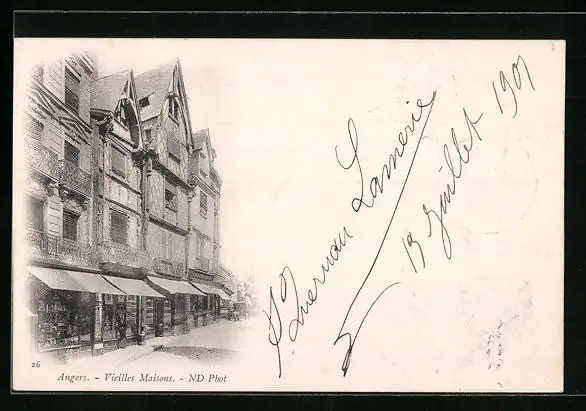 26
Angers. - Vieilles Maisons. - ND Phot
Lamerie
13 Juillet 1901